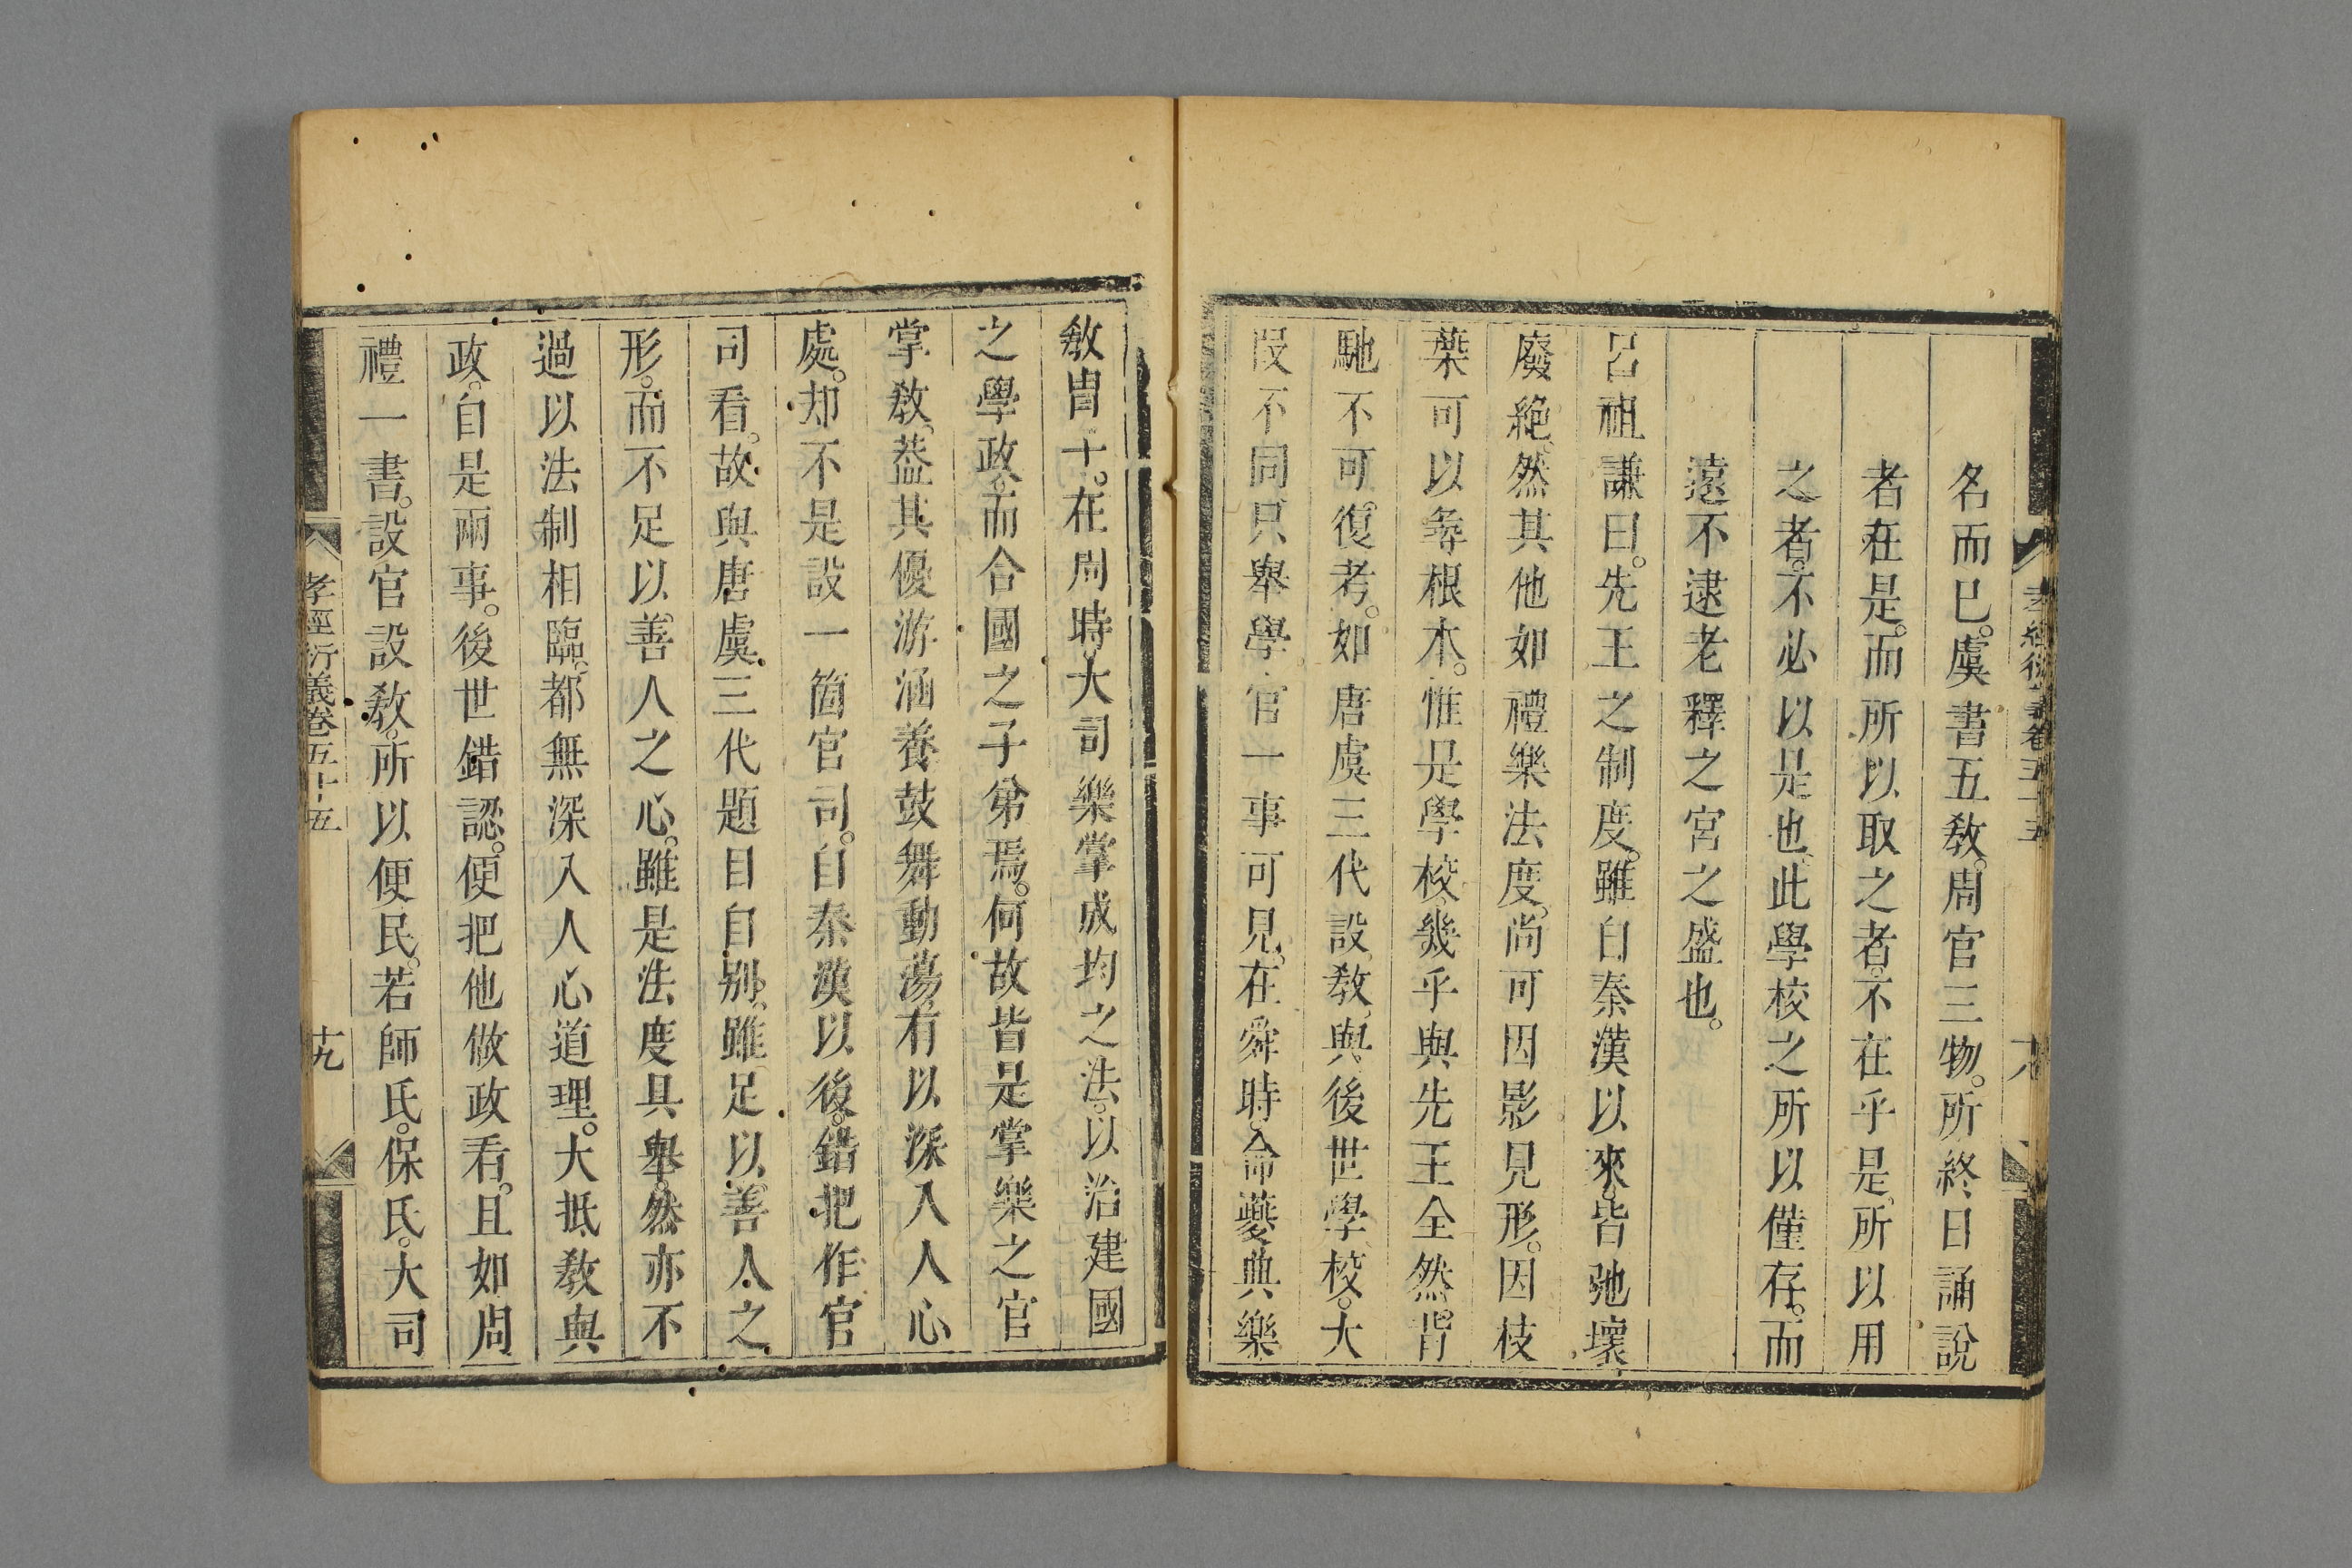 名而已。虞書五教。周官三物。所終日誦說
者在是。而所以取之者。不在乎是。所以用
之者。不必以是也。此學校之所以僅存。而
遠不逮老釋之宮之盛也。
呂祖謙曰。先王之制度。雖自秦漢以來。皆弛壞
廢絶。然其他如禮樂法度。尚可因影見形。因枝
葉可以尋根本。惟是學校。幾乎與先王全然。背
馳不可。復考。如唐虞三代設教。與後世學校。大
段不同。只舉學官一事可見。在舜時。命夔典樂
教胄子。在周時。大司樂掌成均之法。以治建國
之學政。而合國之子弟焉。何故皆是掌樂之官
掌教。葢其優游涵養鼓舞動蕩。有以深入人心
處。却不是設一箇官司。自秦漢以後。錯把作官
司看。故與唐虞。三代題目自别。雖足以。善人之
形。而不足以。善人之心。雖是法度具舉。然亦不
過以法制相臨。都無深入人心道理。大抵教與
政。自是兩事。後世錯認。便把他做政看。且如周
禮一書。設官設教。所以便民。若師氏。保氏。大司
孝經衍義卷五十五
十九